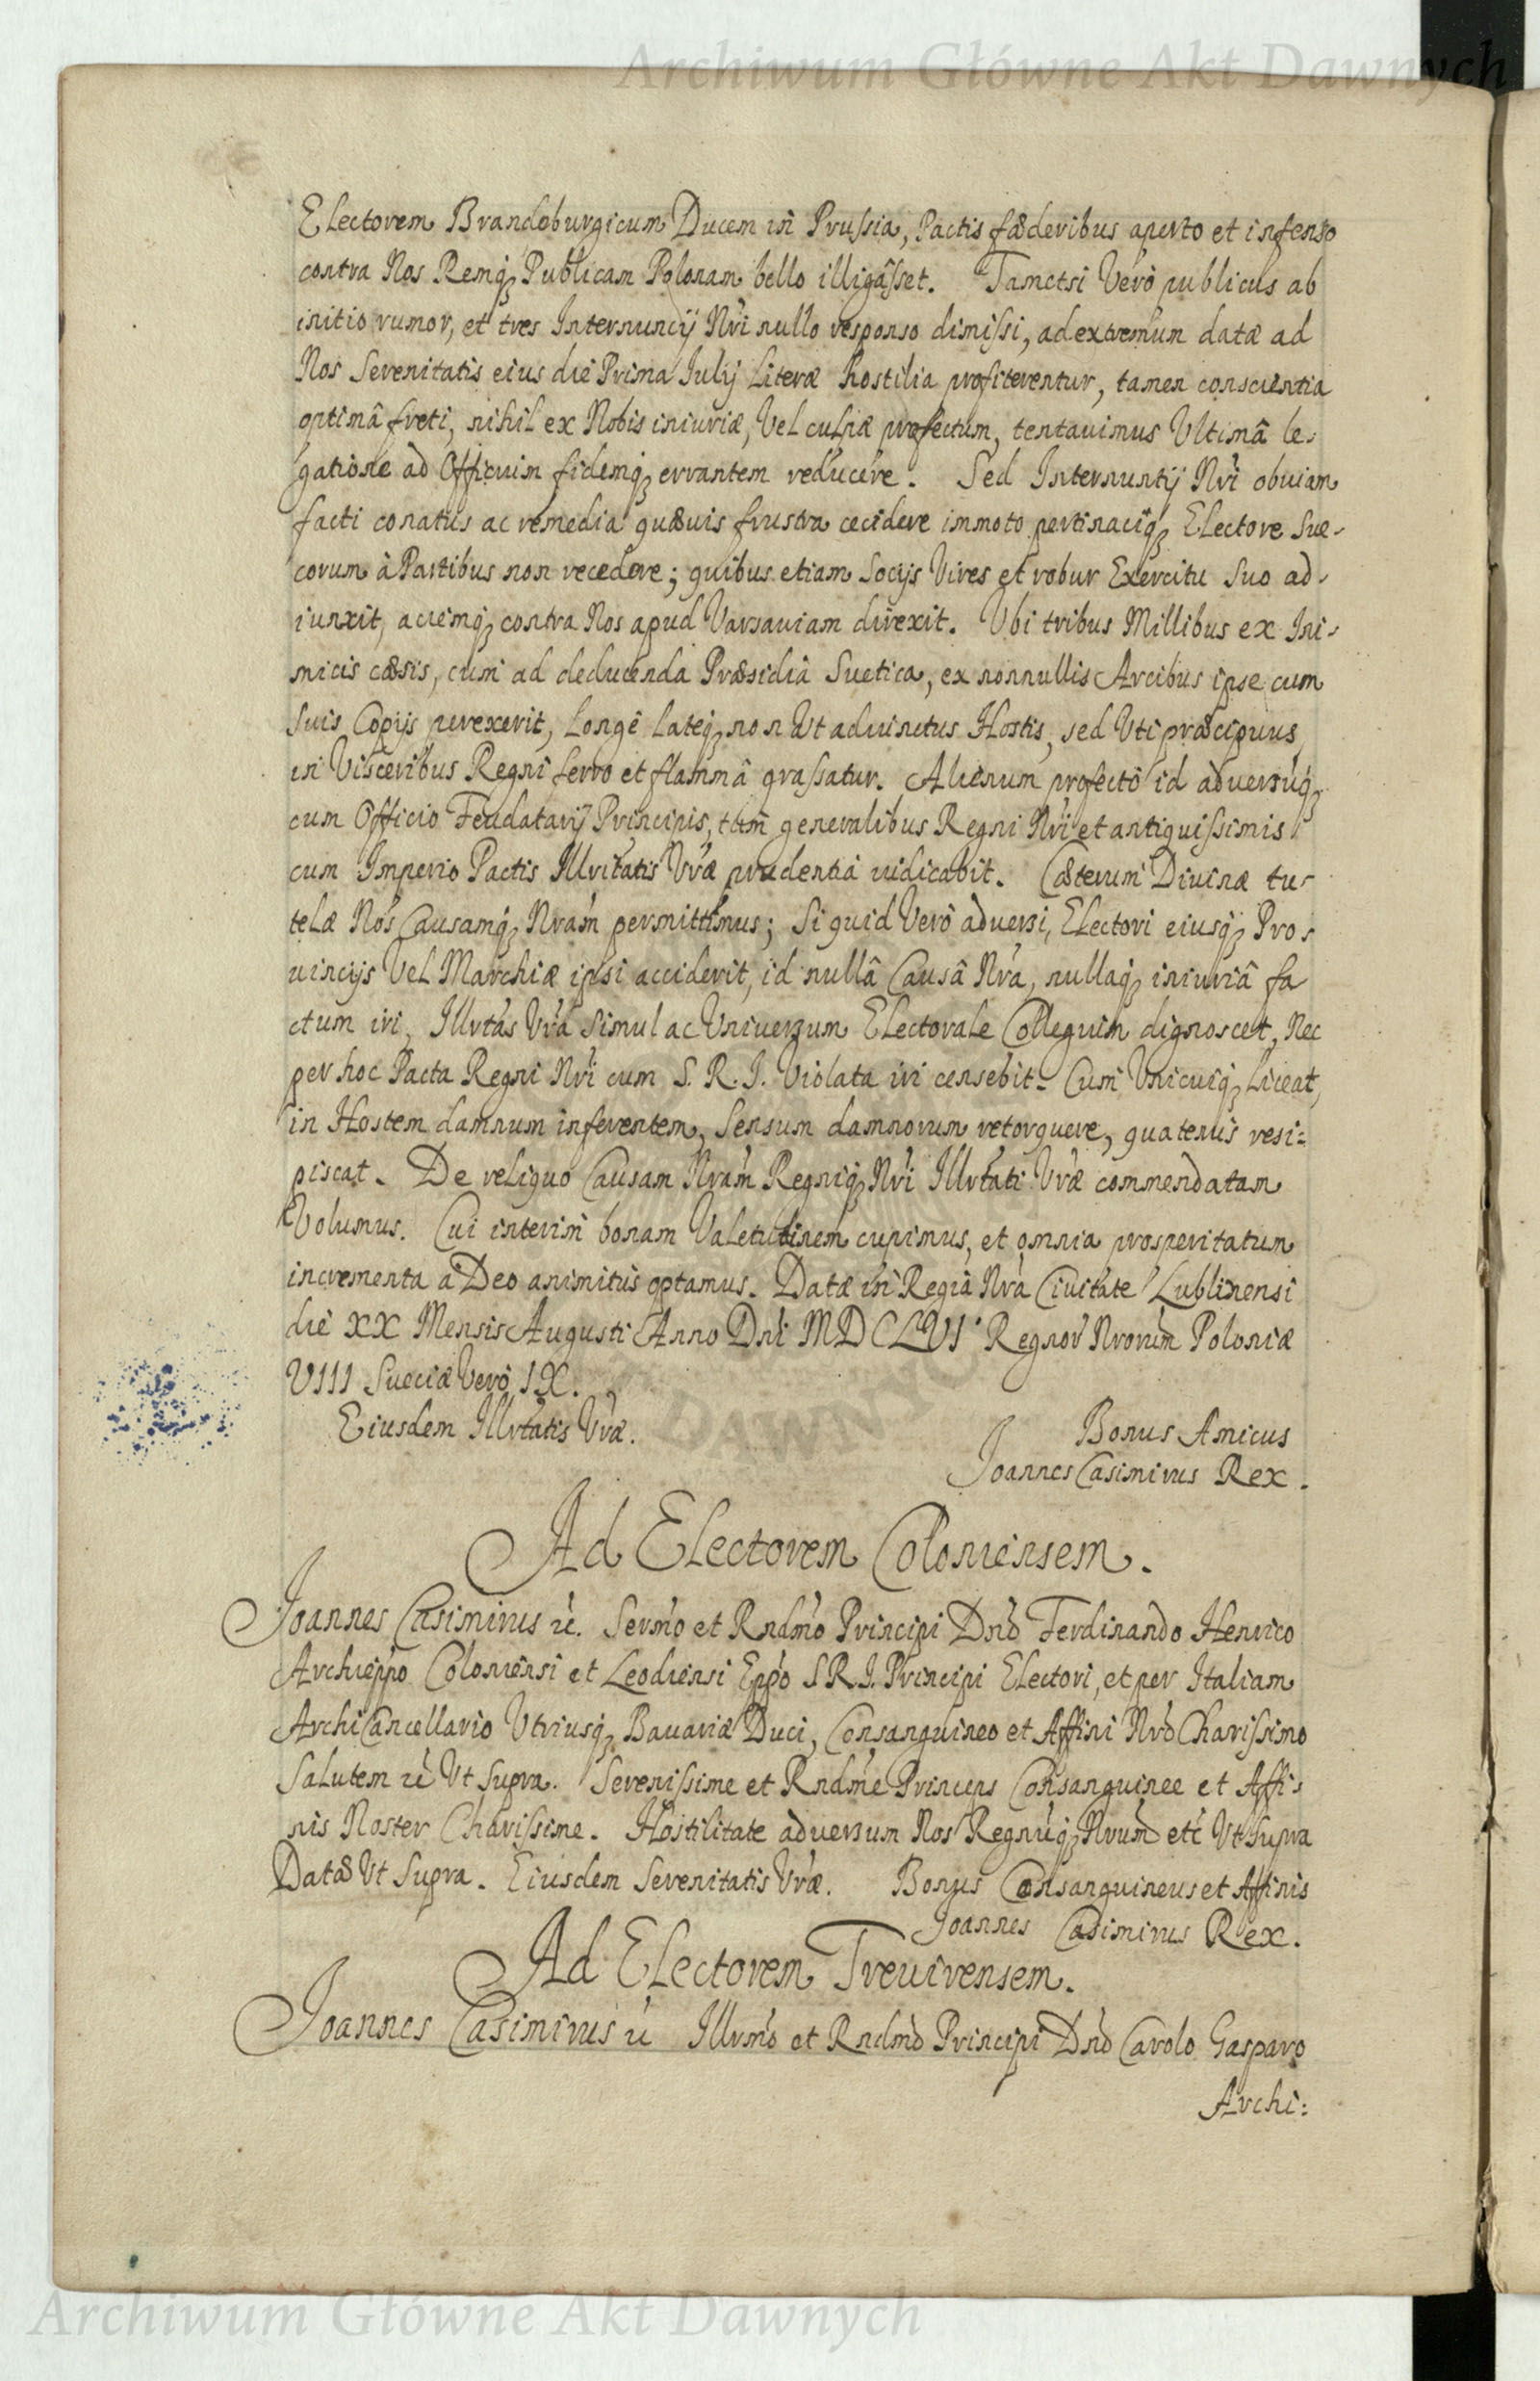 Archiwum Główne Akt Dawnych
Electorem Brandeburgicum Ducem in Prussia, Pactis fœderibus aperto et infenso
contra Nos Remq̨ Publicam Polonam bello illigâsset. Tametsi Verò publicus ab
initio rumor, et tres Internuncij Nr̃i nullo responso dimissi, ad extremum datæ ad
Nos Serenitatis eius die Prima Julij Literæ hostilia profiterentur, tamen conscientia
optimâ freti, nihil ex Nobis iniuriæ, Vel culpæ profectum, tentauimus Ultimâ le-
gatione ad Officium fidemq̨ errantem reducere. Sed Internuntij Nr̃i obuiam
facti conatus ac remedia quæuis frustra cecidere immoto pertinaciq̨ Electore Sue-
corum à Partibus non recedere; quibus etiam Socijs Vires et robur Exercitu Suo ad-
iunxit, aciemq̨ contra Nos apud Varsauiam direxit. Ubi tribus Millibus ex Ini-
micis cæsis, cum ad deducenda Præsidia Suetica, ex nonnullis Arcibus ipse cum
Suis Copijs perexerit, Longè Lateq̨ non Ut adiunctus Hostis, sed Uti præcipuus
in Visceribus Regni ferro et flammâ grassatur. Alienum profectò id aduersuq̨
cum Officio Feudatarij Principis, tum generalibus Regni Nr̃i et antiquissimis
cum Imperio Pactis Illritatis Vr̃æ prudentia iudicabit. Cæterum Diuinæ tu-
telæ Nos Causamq̨ Nram permittimus; Si quid Verò aduersi, Electori eiusq̨ Pro-
uincijs Vel Marchiæ ipsi acciderit, id nullâ Causâ Nr̃a, nullaq̨ iniuriâ fa
ctum iri, Illrtas Vr̃a Simul ac Uniuersum Electorale Collegium dignoscet, Nec
per hoc Pacta Regni Nr̃i cum S. R. I. Violata iri censebit. Cum Unicuiq̨ Liceat,
in Hostem damnum inferentem, Sensum damnorum retorquere, quatenus resi-
piscat. De reliquo Causam Nram Regniq̨ Nr̃i Illrtati Vr̃æ commendatam
Volumus. Cui interim bonam Valetudinem cupimus, et omnia prosperitatum
incrementa a Deo animitus optamus. Datæ in Regia Nr̃a Ciuitate Lublinensi
die XX Mensis Augusti Anno Dni MDCLVI Regnor̃ Nrorum Poloniæ
VIII Sueciæ Verò IX.
Eiusdem Illrtatis Vr̃æ.
Bonus Amicus
Joannes Casimirus Rex.
Ad Electorem Coloniensem.
Joannes Casimirus &. Sermo et Rndmo Principi Dno Ferdinando Henrico
Archieppo Coloniensi et Leodiensi Eppo S R I. Principi Electori, et per Italiam
ArchiCancellario Utriusq̨ Bauariæ Duci, Consanguineo et Affini Nro Charissimo
Salutem & Ut Supra. Serenissime et Rndme Princeps Consanguinee et Affi-
nis Noster Charissime. Hostilitate aduersum Nos Regnuq̨ Nrum etc Ut Supra
Datæ Ut Supra. Eiusdem Serenitatis Vr̃æ. Bonus Consanguineus et Affinis
Joannes Casimirus Rex.
Ad Electorem Treuirensem.
Joannes Casimirus & Illrmo et Rndmo Principi Dno Carolo Gasparo
Archi:
Archiwum Główne Akt Dawnych